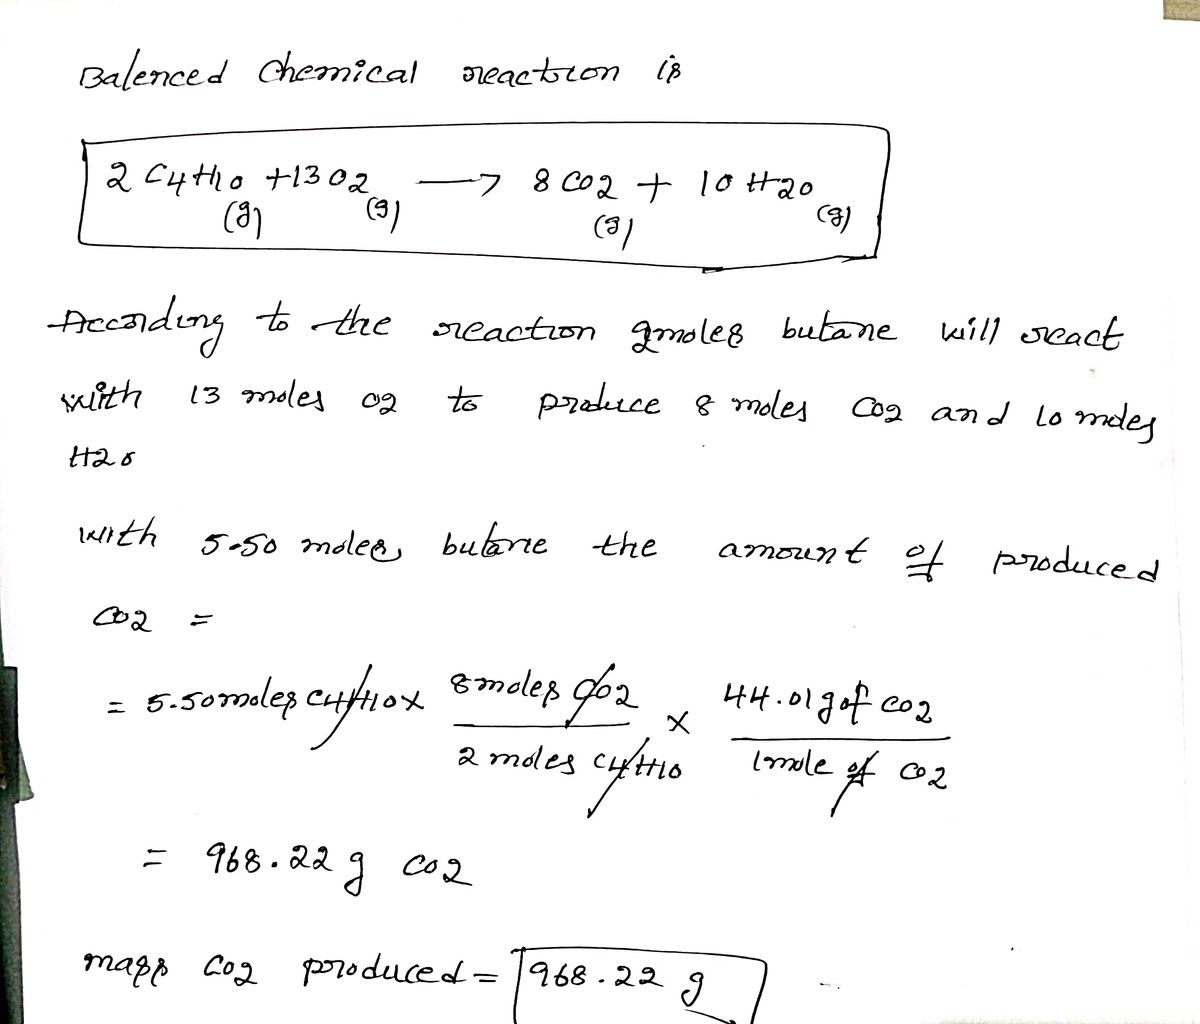 Balenced Chemical reaction is
2 C4H10 (g) + 13 O2 (g) → 8 CO2 (g) + 10 H2O (g)
According to the reaction 2moles butane will react
with 13 moles O2 to produce 8 moles CO2 and 10 moles
H2O
with 5.50 moles butane the amount of produced
CO2 =
= 5.50moles C4H10 x 8 moles CO2 / 2 moles C4H10 x 44.01 g of CO2 / 1 mole of CO2
= 968.22 g CO2
mass CO2 produced = 968.22 g